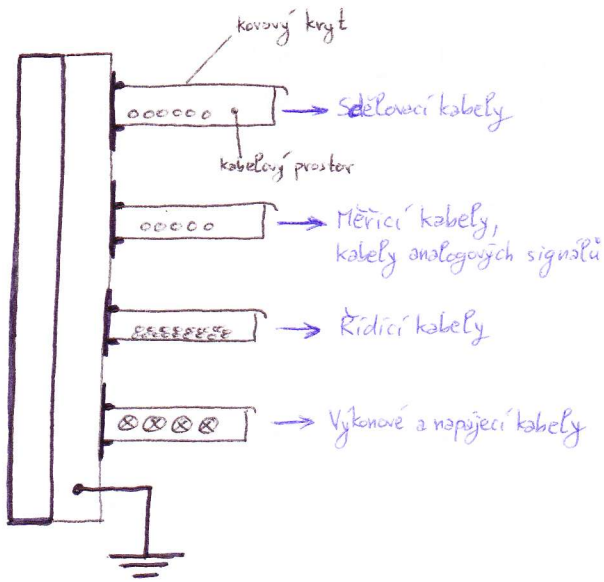 kovový kryt
Sdělovací kabely
kabelový prostor
Měřicí kabely,
kabely analogových signálů
Řídicí kabely
Výkonové a napájecí kabely